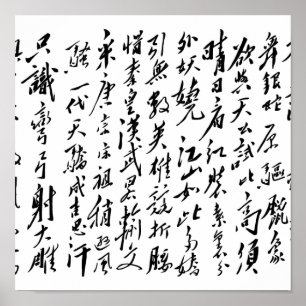 舞銀蛇原驅臘象
欲與天公試比高須
晴日看紅裝素裹分
外妖嬈江山如此多嬌
引無數英雄競折腰
惜秦皇漢武略輸文
采唐宗宋祖稍遜風
騷一代天驕成吉思汗
只識彎弓射大雕